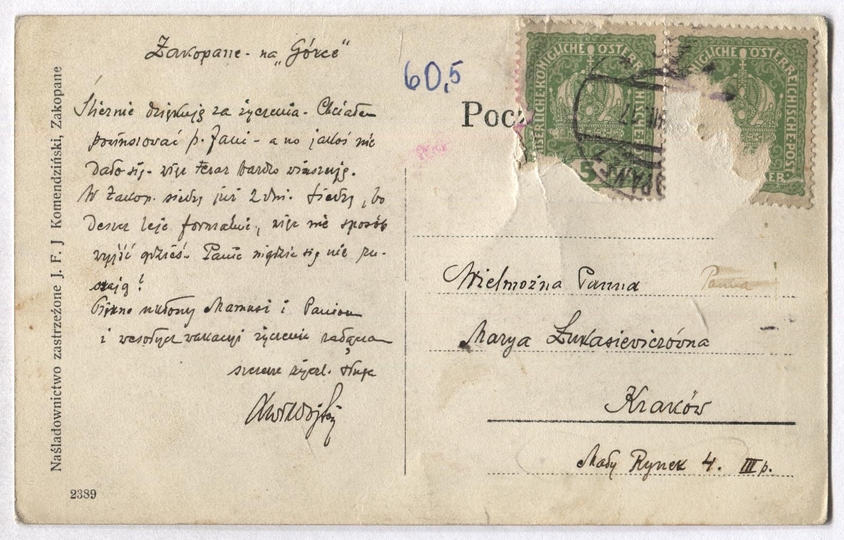 Zakopane - na „Górce”
Ślicznie dziękuję za życzenia - Chciałem
p. Jani - a no jakoś nie
dało się - więc teraz bardzo
W Zakop. siedzę już 2 dni. Siedzę, bo
deszcz leje formalnie, więc nie sposób
wyjść gdzieś - Panie nigdzie się nie ru-
szają?
Piękne ukłony Mamusi i Paniom
i wesołych wakacyi życzenia
szczerze życzl. sługa
Naśladownictwo zastrzeżone J. F. J Komendziński, Zakopane
2389
60,5
Pocz
KÖNIGLICHE ÖSTERR
5
KÖNIGLICHE ÖSTERREICHISCHE POST
Wielmożna Panna
Panna
Marya Łukasiewiczówna
Kraków
Mały Rynek 4. III p.